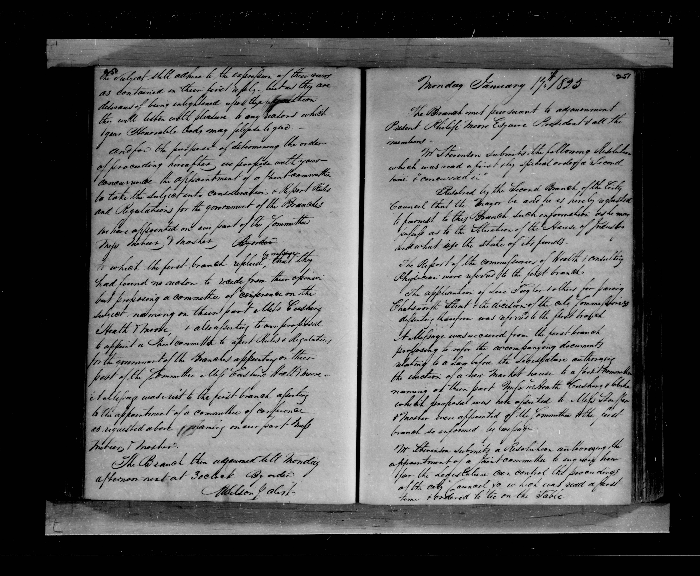 250
the Subject shall adhere to the expression of their views
as contained in their first reply. but as they are
desirous of being enlightened upon the question
the will listen with pleasure to any reasons which
your Honorable body may please to give —
And for the purpose of determining the order
of proceeding hereafter we propose with your
concurrence the appointment of a Joint Committee
to take the subject into consideration, & report Rules
and Regulations for the government of the Branches
We have appointed on our part of the Committee
Messrs & Mosher By order
to which the first branch replied by message that they
had found no reason to recede from their opinion
but proposing a committee of conference on the
subject naming on their part Messrs Cushing
Heath & Moore & also assenting to our proposal
to appoint a Joint committee to report Rules & Regulations
for the government of the Branches appointing on their
part of the Committee Messrs
A message was sent to the first branch assenting
to the appointment of a committee of conference
as requested above, naming on our part Messrs
& Mosher
The Branch then adjourned till Monday
afternoon next at 3 oclock By order
251
Monday January 19th 1835
The Branch met pursuant to adjournment
Present Philip Moore Esquire President & all the
members.
Mr Stevenson submits the following Resolution
which was read a first & by special order a second
time & concurred in
Resolved by the Second Branch of the City
Council that the Mayor be and he is hereby requested
to furnish to this Branch such information as he may
possess as to the situation of the House of
and what is the state of its funds.
The Report of the commissioners of Health & consulting
Physician were referred to the first branch
The application of & others for paving
Chatsworth Street & the decision of the city commissioners
thereon was referred to the first branch
A Message was received from the first branch
proposing to refer the accompanying documents
relating to a law before the Legislature authorizing
the erection of a new Market house to a Joint Committee
naming of their part Messrs Heath, Cushing &
which proposal was here assented to & Messrs
& Mosher were appointed of the Committee & the first
branch so informed by message
Mr Stevenson submits a Resolution authorizing the
appointment of a Joint committee to enquire how
far the Legislature can control the proceedings
of the city Council &c which was read a first
time & ordered to lie on the Table